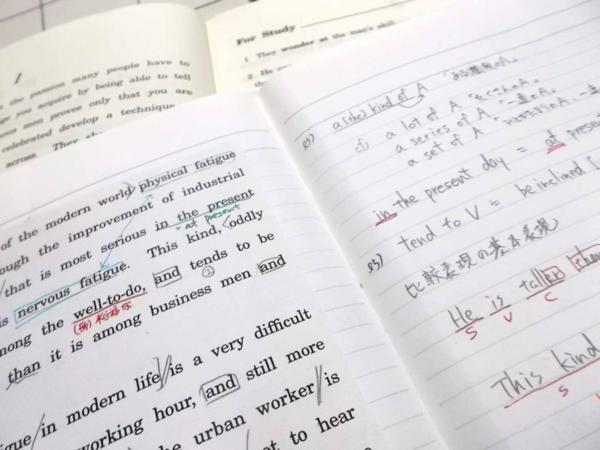 For Study
1 They wonder at the man's skill.
2 He
the passion many people have to
you acquire by being able to tell
men proves only that you are
celebrated develop a technique
across. They
of the modern world physical fatigue
ough the improvement of industrial
that is most serious in the present
= at present
is nervous fatigue. This kind, oddly
among the well-to-do, and tends to be
②
than it is among business men and
in modern life is a very difficult
working hour, and still more
the urban worker is
to hear
a (the) kind of A
cf) a lot of A 「たくさんのA」
a series of A 「一連のA」
a set of A
in the present day = at present
tend to V = be inclined
比較表現の基本表現
He is taller than
S V C
This kind
S